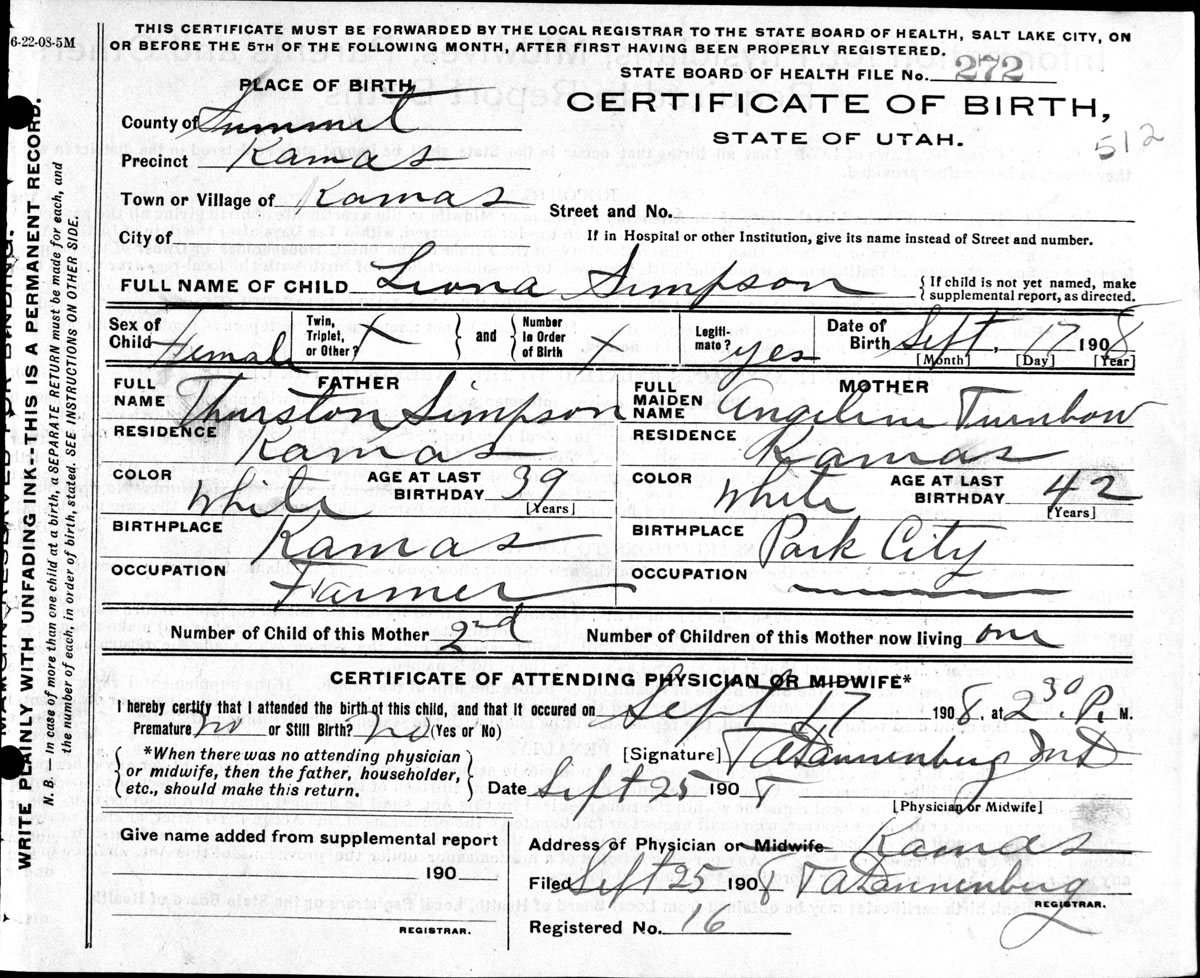 6-22-08-5M
THIS CERTIFICATE MUST BE FORWARDED BY THE LOCAL REGISTRAR TO THE STATE BOARD OF HEALTH, SALT LAKE CITY, ON
OR BEFORE THE 5TH OF THE FOLLOWING MONTH, AFTER FIRST HAVING BEEN PROPERLY REGISTERED.
STATE BOARD OF HEALTH FILE No. 272
PLACE OF BIRTH
CERTIFICATE OF BIRTH,
STATE OF UTAH.
512
County of Summit
Precinct Kamas
Town or Village of Kamas
Street and No.
City of
If in Hospital or other Institution, give its name instead of Street and number.
FULL NAME OF CHILD Liona Simpson { If child is not yet named, make
supplemental report, as directed.
Sex of Child Female Twin, Triplet, or Other? X } and { Number In Order of Birth X Legitimate? yes Date of Birth Sept. 17 1908
[Month] [Day] [Year]
FATHER
FULL NAME Thurston Simpson
RESIDENCE Kamas
COLOR White AGE AT LAST BIRTHDAY 39 [Years]
BIRTHPLACE Kamas
OCCUPATION Farmer
MOTHER
FULL MAIDEN NAME Angeline Turnbow
RESIDENCE Kamas
COLOR White AGE AT LAST BIRTHDAY 42 [Years]
BIRTHPLACE Park City
OCCUPATION
Number of Child of this Mother 2nd Number of Children of this Mother now living one
CERTIFICATE OF ATTENDING PHYSICIAN OR MIDWIFE*
I hereby certify that I attended the birth of this child, and that it occured on Sept 17 1908, at 2 30 P. M.
Premature? no or Still Birth? no (Yes or No)
*When there was no attending physician
or midwife, then the father, householder,
etc., should make this return.
[Signature] T A Dannenburg M D
Date Sept 25 190
[Physician or Midwife]
Give name added from supplemental report
190
REGISTRAR.
Address of Physician or Midwife Kamas
Filed Sept 25 1908 T A Dannenburg
REGISTRAR.
Registered No. 16
WRITE PLAINLY WITH UNFADING INK---THIS IS A PERMANENT RECORD.
N. B. — In case of more than one child at a birth, a SEPARATE RETURN must be made for each, and
the number of each, in order of birth, stated. SEE INSTRUCTIONS ON OTHER SIDE.